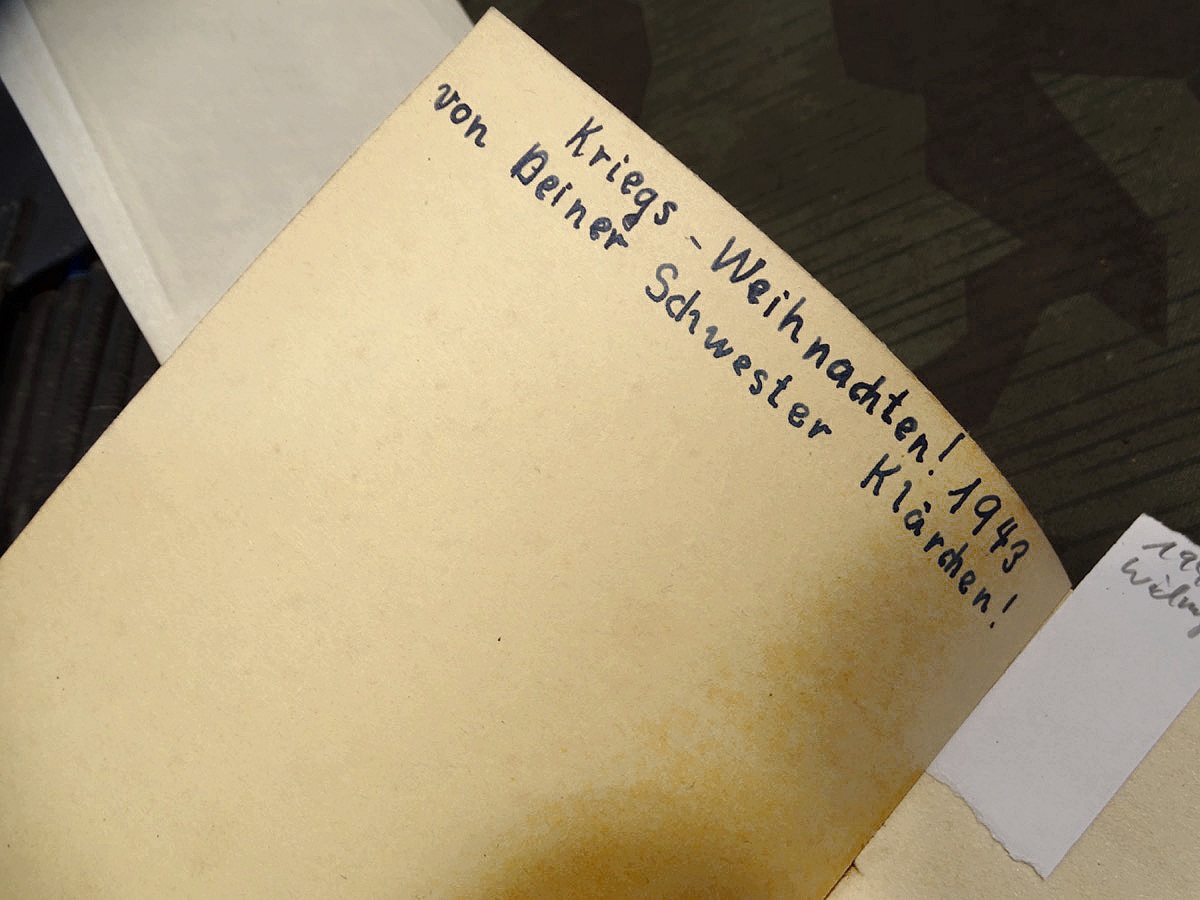 Kriegs-Weihnachten! 1943
von Deiner Schwester Klärchen!